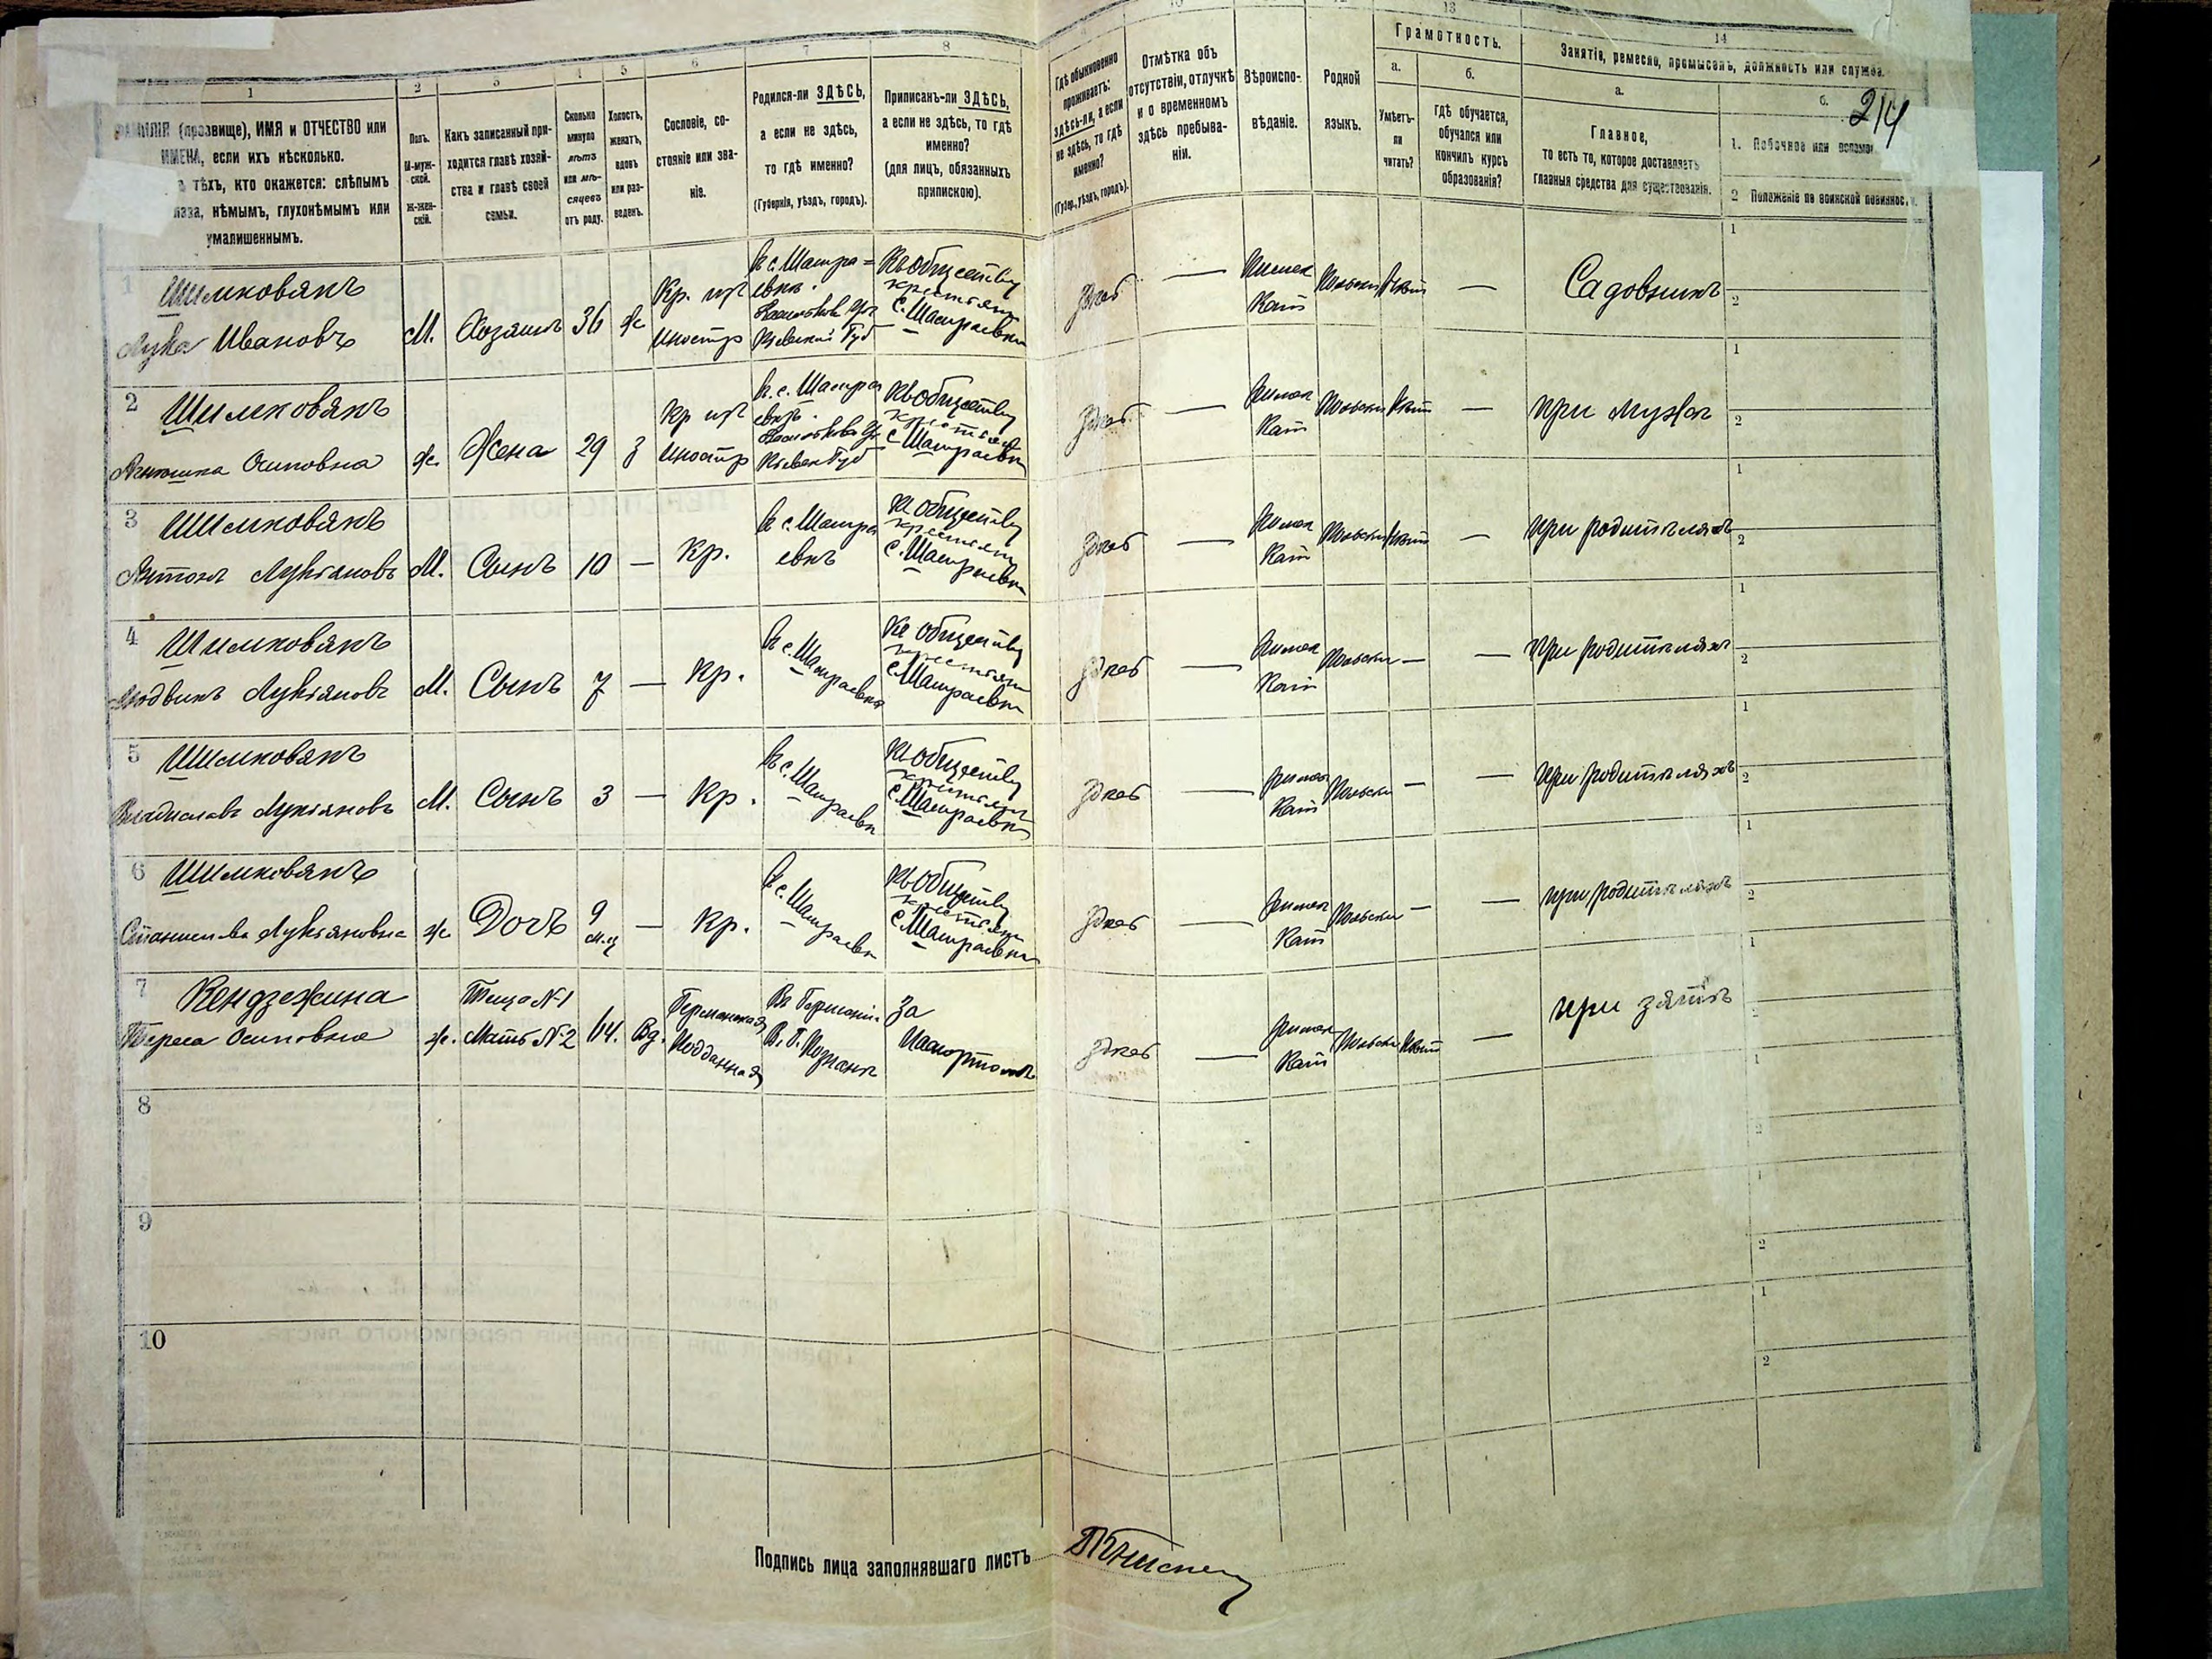 1 2 3 4 5 6 7 8
(прозвище), ИМЯ и ОТЧЕСТВО или
ИМЕНА, если ихъ нѣсколько.
тѣхъ, кто окажется: слѣпымъ
нѣмымъ, глухонѣмымъ или
умалишеннымъ.
Полъ.
М-муж-
ской.
Ж-жен-
скій.
Какъ записанный при-
ходится главѣ хозяй-
ства и главѣ своей
семьи.
Сколько
минуло
лѣтъ
или мѣ-
сяцевъ
отъ роду.
Холостъ,
женатъ,
вдовъ
или раз-
веденъ.
Сословіе, со-
стояніе или зва-
ніе.
Родился-ли ЗДѢСЬ,
а если не здѣсь,
то гдѣ именно?
(Губернія, уѣздъ, городъ).
Приписанъ-ли ЗДѢСЬ,
а если не здѣсь, то гдѣ
именно?
(для лицъ, обязанныхъ
припискою).
Гдѣ обыкновенно
проживаетъ:
здѣсь-ли, а если
не здѣсь, то гдѣ
именно?
(Губер., уѣздъ, городъ).
Отмѣтка объ
отсутствіи, отлучкѣ
и о временномъ
здѣсь пребыва-
ніи.
Вѣроиспо-
вѣданіе.
Родной
языкъ.
13
Грамотность.
а.
Умѣетъ-
ли
читать?
б.
Гдѣ обучается,
обучался или
кончилъ курсъ
образованія?
14
Занятія, ремесло, промыселъ, должность или служба.
а.
Главное,
то есть то, которое доставляетъ
главныя средства для существованія.
б.
214
1. Побочное или
2 Положеніе по воинской повинности.
1
Шимковякъ
Лука Ивановъ
М. Хозяинъ 36 ж
Кр. изъ
Иностр
Въ с. Шамра=
евкѣ.
Кіевской Губ
Къ обществу
крестьянъ
с. Шамраевки
Здѣсь — Римск
Кат
Польскій —
Садовникъ
2 Шимковякъ
Осиповна
ж. Жена 29 З
Кр изъ
Иностр
В. с. Шамра
евкѣ.
Къ обществу
крестьянъ
с Шамраевки
Здѣсь — Римск
Кат
Польскій —
при мужѣ
3 Шимковякъ
Антонъ Лукьяновъ
М. Сынъ 10 — Кр.
Въ с. Шамра
евкѣ
Къ обществу
крестьянъ
с. Шамраевки
Здѣсь — Римск
Кат
Польскій —
при родителяхъ
4 Шимковякъ
Людвикъ Лукьяновъ
М. Сынъ 7 — Кр.
Въ с. Шамраевкѣ
Къ обществу
крестьянъ
с. Шамраевки
Здѣсь — Римск
Кат
Польскій — —
при родителяхъ
5 Шимковякъ
Владиславъ Лукьяновъ
М. Сынъ 3 — Кр.
Въ с. Шамраевк
Къ обществу
крестьянъ
с. Шамраевки
Здѣсь — Римск
Кат
Польскій — —
при родителяхъ
6 Шимковякъ
Лукьяновна
ж Дочь 9 м-ц — Кр.
Въ с. Шамраевк
Къ обществу
крестьянъ
с. Шамраевки
Здѣсь — Римск
Кат
Польскій — —
при родителяхъ
7 Кендзежина
Тереса Осиповна
Теща №1
ж. Мать №2 64. Вд.
Германская
Подданная
Въ Германіи
В. Г. Познань
За
Паспортомъ
Здѣсь — Римск
Кат
Польскій —
при зятѣ
8
9
10
Подпись лица заполнявшаго листъ